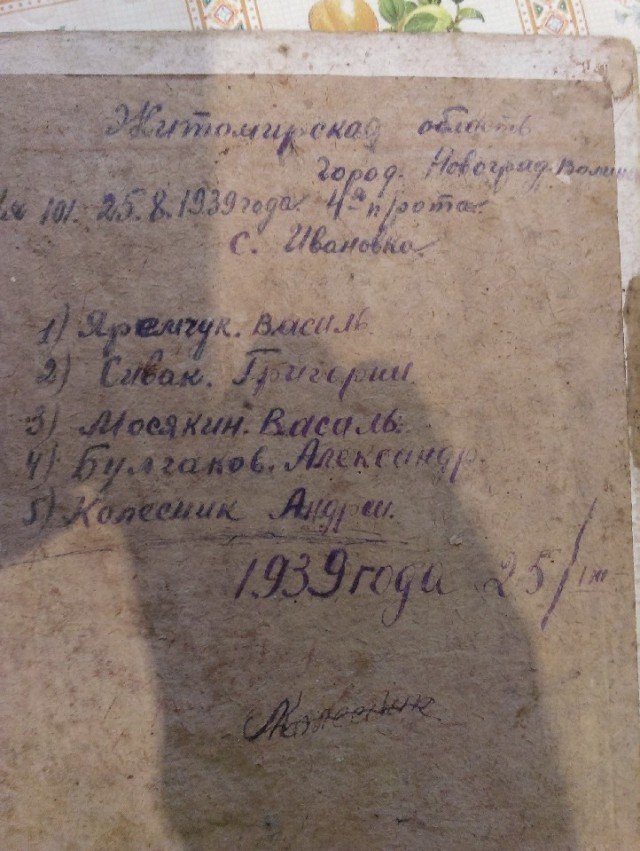 Житомирская область
город. Новоград. Волин
101. 25.8.1939 года. 4-я п рота.
с. Ивановка.
1) Яремчук. Василь.
2) Сивак. Григории.
3) Мосякин. Василь.
4) Булгаков. Александр.
5) Колесник Андреи.
1939 года 25/
Колесник